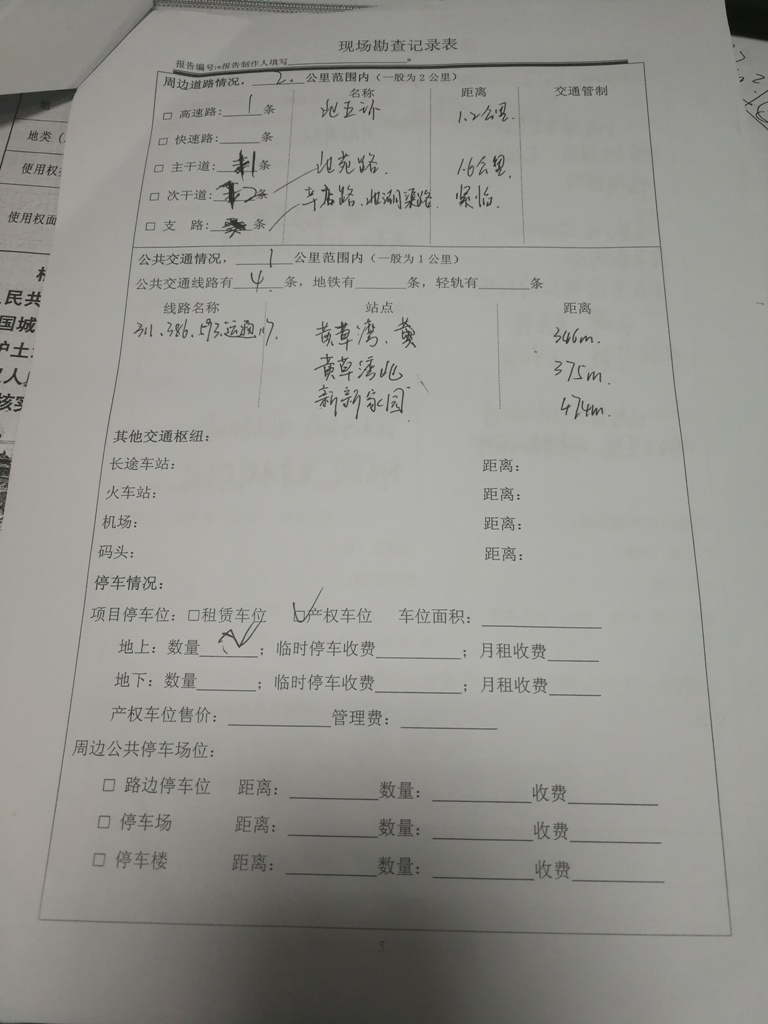 现场勘查记录表
报告编号:«报告制作人填写
周边道路情况，2.公里范围内（一般为2公里）
名称 距离 交通管制
□ 高速路：1条 北五环 1.2公里.
□ 快速路：条
□ 主干道：1条 北苑路. 1.6公里.
□ 次干道：2条 辛店路、北湖渠路. 紧临.
□ 支 路：条
公共交通情况，1公里范围内（一般为1公里）
公共交通线路有4.条，地铁有条，轻轨有条
线路名称 站点 距离
311、386、593、运通117. 黄草湾、 346m.
黄草湾北 375m.
新新家园. 474m.
其他交通枢纽：
长途车站： 距离：
火车站： 距离：
机场： 距离：
码头： 距离：
停车情况：
项目停车位：□租赁车位 ☑产权车位 车位面积：
地上：数量；临时停车收费；月租收费
地下：数量；临时停车收费；月租收费
产权车位售价：管理费：
周边公共停车场位：
□ 路边停车位 距离：数量：收费
□ 停车场 距离：数量：收费
□ 停车楼 距离：数量：收费
5
地类（
使用权
使用权面
民共
国城
护土
人
核实